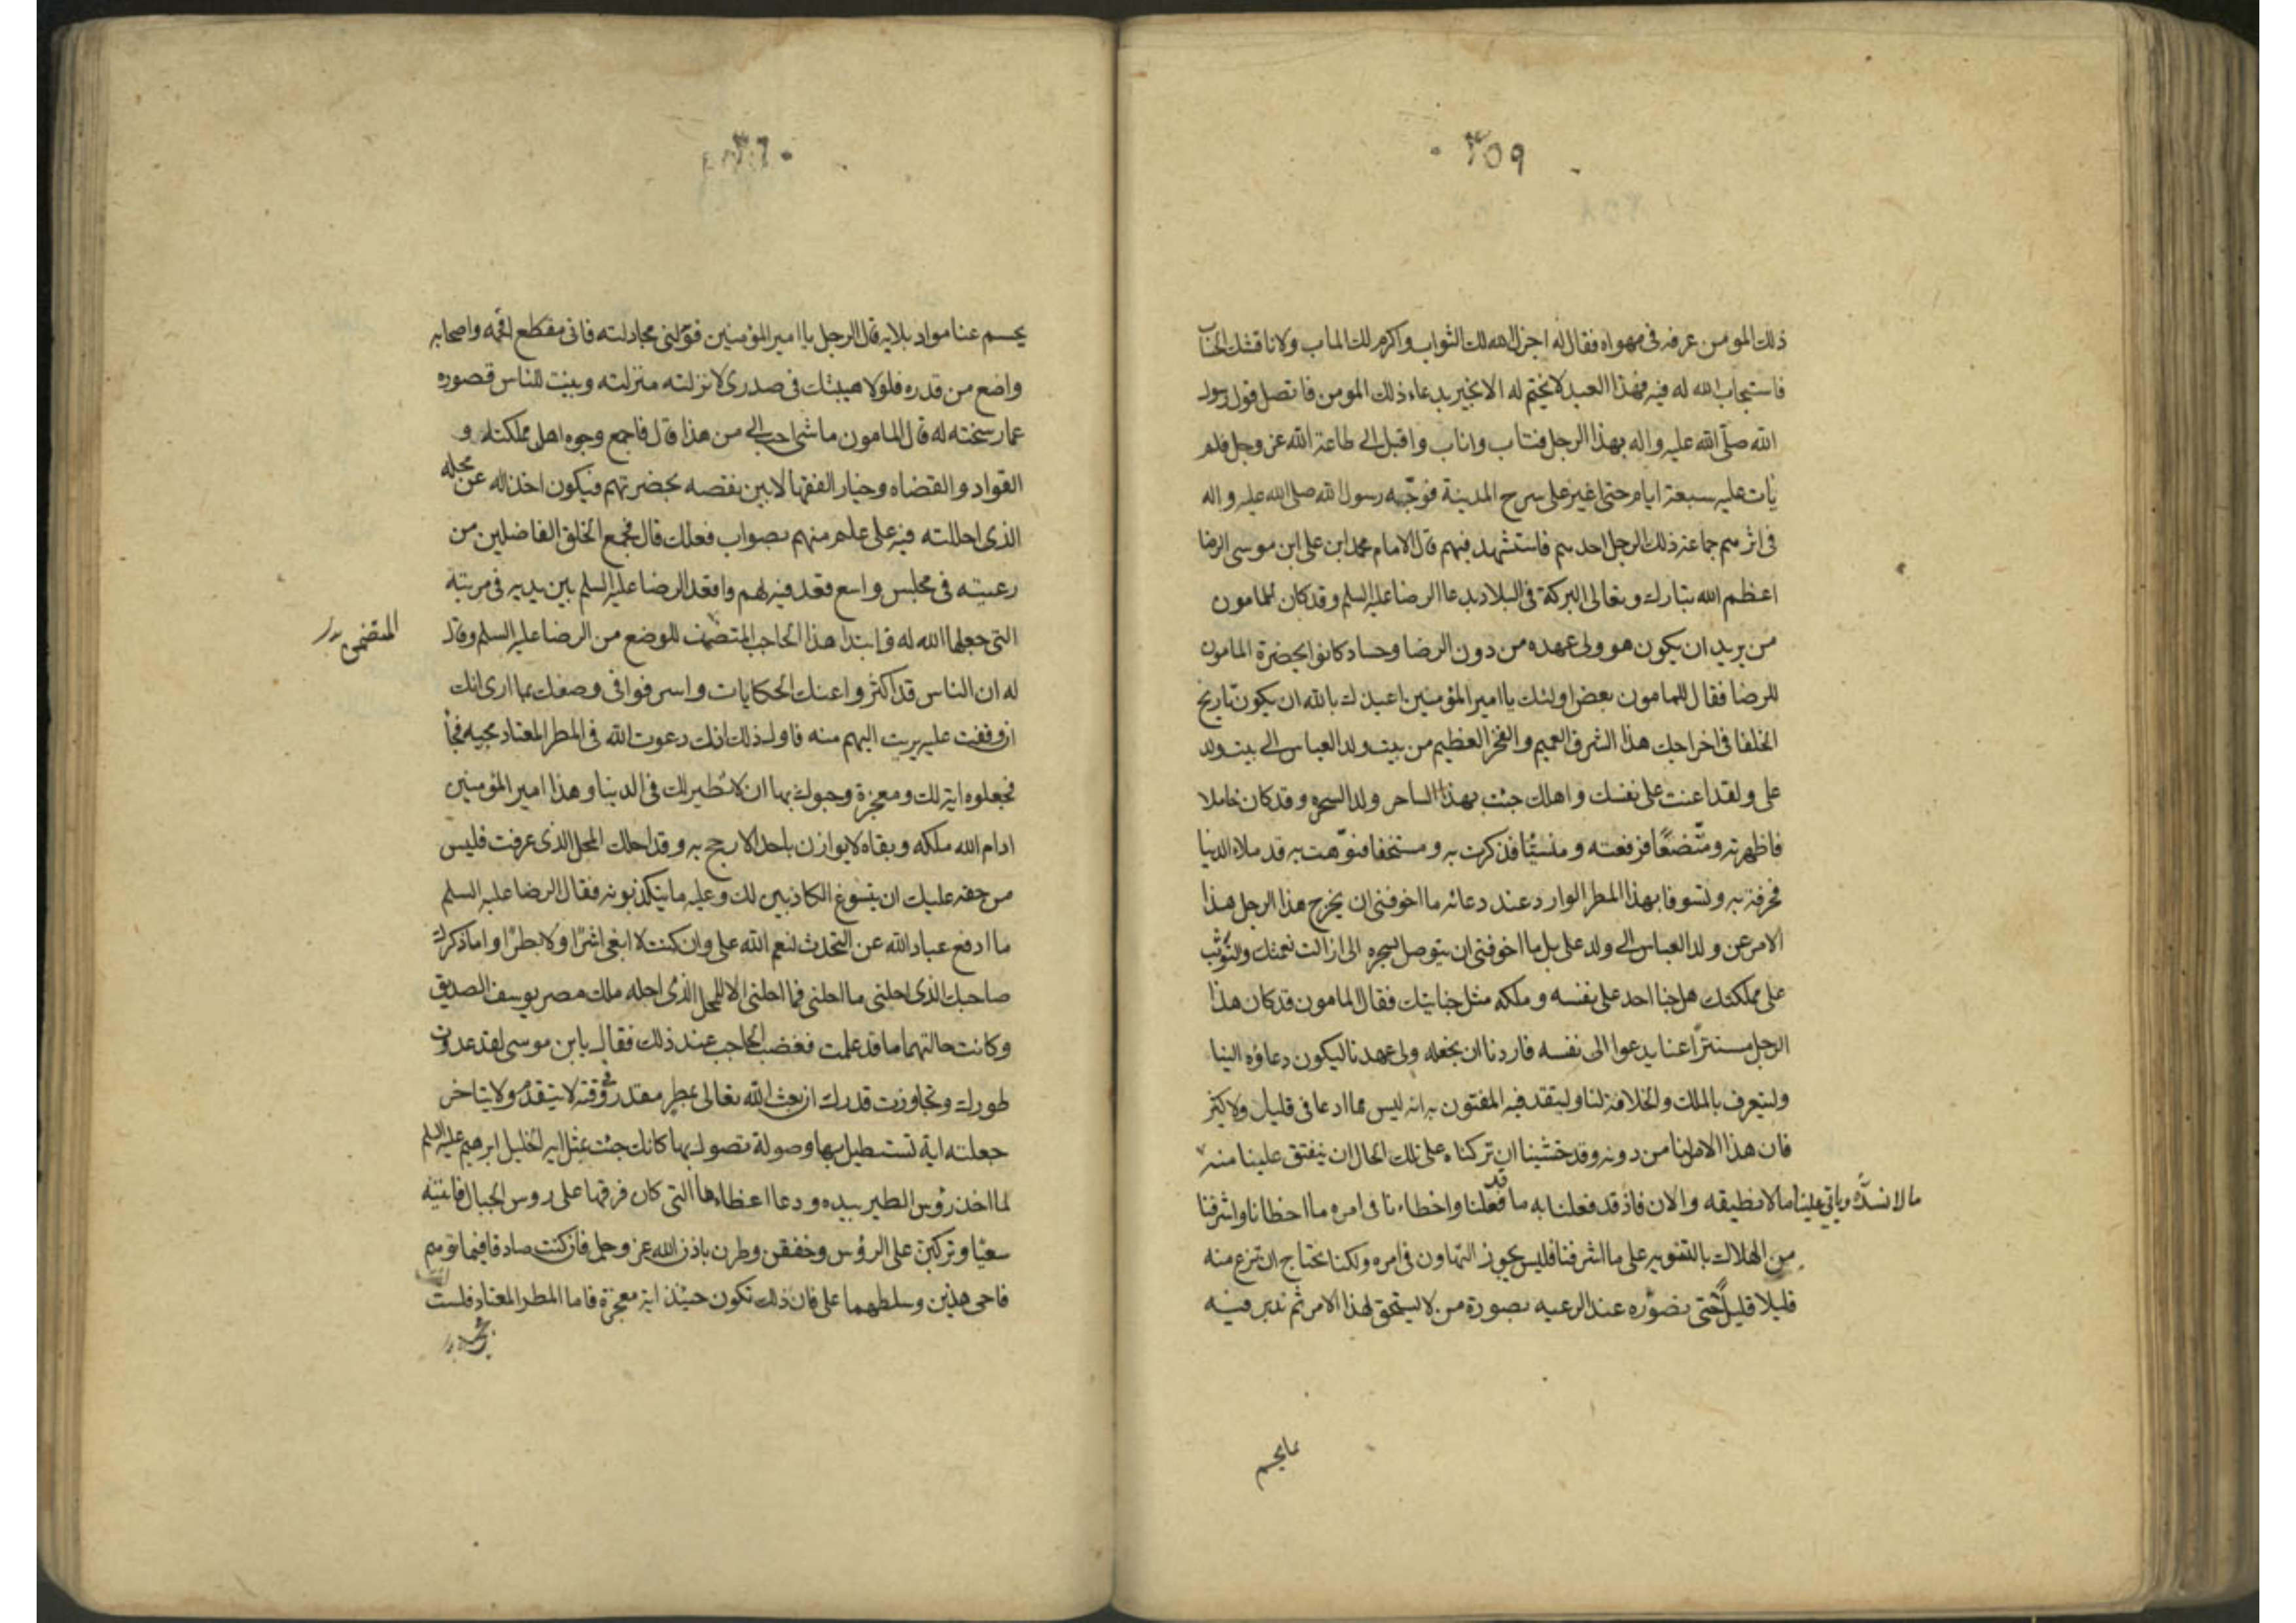 ٣٥٩
ذلك المومن عرفه فى مهواه فقال له اجزل الله لك الثواب واكرم لك الماب ولا ناقشك الحساب
فاستجاب الله له فيه فهذا العبد لا يختم له الا بخير بدعاء ذلك المومن فاتصل قول رسول
الله صلّى الله عليه واله بهذا الرجل فتاب واناب واقبل الى طاعة الله عز وجل فلم
يات عليه سبعة ايام حتى اغير على سرح المدينة فوجّه رسول الله صلى الله عليه واله
فى اثرهم جماعة ذلك الرجل احدهم فاستشهد فيهم قال الامام محمد ابن على ابن موسى الرضا
اعظم الله تبارك وتعالى البركة فى البلاد بدعا الرضا عليه السلم وقد كان للمامون
من يريد ان يكون هو ولى عهده من دون الرضا وحساد كانوا بحضرة المامون
للرضا فقال للمامون بعض اولئك يا امير المؤمنين اعيذك بالله ان يكون تاريخ
الخلفا فى اخراجك هذا الشرف العميم والفخر العظيم من بيت ولد العباس الى بيت ولد
على ولقد اعنت على نفسك واهلك جئت بهذا الساحر ولد السحره وقد كان خاملا
فاظهرته ومتّضعًا فرفعته ومنسيًا فذكرت به ومستخفا فنوّهت به قد ملاء الدنيا
مخرقة به وتشوقا بهذا المطر الوارد عند دعائه ما اخوفنى ان يخرج هذا الرجل هذا
الامر عن ولد العباس الى ولد على بل ما اخوفنى ان يتوصل بسحره الى ازالت نعمتك والتوثب
على مملكتك هل جنا احد على نفسه وملكه مثل جنايتك فقال المامون قد كان هذا
الرجل مستترًا عنا يدعوا الى نفسه فاردنا ان نجعله ولى عهدنا ليكون دعاؤه الينا
وليتعرف بالملك والخلافة لنا وليتقد فيه المفتون به انه ليس مما ادعا فى قليل ولا كثير
فان هذا الامر لنا من دونه وقد خشينا ان تركناه على تلك الحال ان ينفتق علينا منه
ما لا نسدّه وياتى علينا ما لا نطيقه والان فاذ قد فعلنا به ما قد فعلنا واخطاءنا فى امره ما اخطانا واشرفنا
من الهلاك بالتنويه على ما اشرفنا فليس يجوز التهاون فى امره ولكنا نحتاج ان نزع منه
قليلا قليلًا حتى نصوّره عند الرعيه بصورة من لا يستحق لهذا الامر ثم ندبر فيه
بما يحسم
يحسم عنا مواد بلايه قال الرجل يا امير المؤمنين فوّلنى مجادلته فانى مقطع افحمه واصحابه
واضع من قدره فلولا هيبتك فى صدرى لانزلته منزلته وبينت للناس قصوره
عما رسخته له قال المامون ما شئ احب الى من هذا قال فاجمع وجوه اهل مملكتك و
القواد والقضاه وخيار الفقها لابين نقصه بحضرتهم فيكون اخذا له عن محله
الذى احللته فيه على علم منهم بصواب فعلك قال فجمع الخلق الفاضلين من
رعيته فى مجلس واسع فقعد فيه لهم واقعد الرضا عليه السلم بين يديه فى مرتبته
التى جعلها الله له فابتدا هذا الحاجب المتضمن للوضع من الرضا عليه السلم وقال
المتضمن
له ان الناس قد اكثروا عنك الحكايات واسرفوا فى وصفك بما ارى انك
ان وقفت عليه بريت اليهم منه فاول ذلك انك دعوت الله فى المطر المعتاد مجيه فجأ
فجعلوه اية لك ومعجزة وجبولك بها ان لا نظير لك فى الدنيا وهذا امير المؤمنين
ادام الله ملكه وبقاه لا يوازن باحد الا رجح به وقد احلك المحل الذى عرفت فليس
من حقه عليك ان تسوغ الكاذبين لك وعليه ما يتكذبونه فقال الرضا عليه السلم
ما ادفع عباد الله عن التحدث لنعم الله على وان كنت لا ابغى اشرًا ولا بطرًا واما ذكرك
صاحبك الذى احلنى ما احلنى فما احلنى الا المحل الذى احله ملك مصر يوسف الصديق
وكانت حالتهما ما قد علمت فغضب الحاجب عند ذلك فقال يابن موسى لقد عدوت
طورك وتجاوزت قدرك ان بعث الله تعالى بمطر مقدر فى وقته لا يتقدم ولا يتاخر
جعلته اية تستطيل بها وصولة تصول بها كانك جئت بمثل ايه الخليل ابرهيم عليه السلم
لما اخذ رؤس الطير بيده ودعا اعظاءها التى كان فرقها على روس الجبال فاتيته
سعيا وتركبن على الرؤس وخفقن وطرن باذن الله عز وجل فان كنت صادقا فيما توهم
فاحى هذين وسلطهما على فان ذلك تكون حيئذ اية معجزة فاما المطر المعتاد فلست